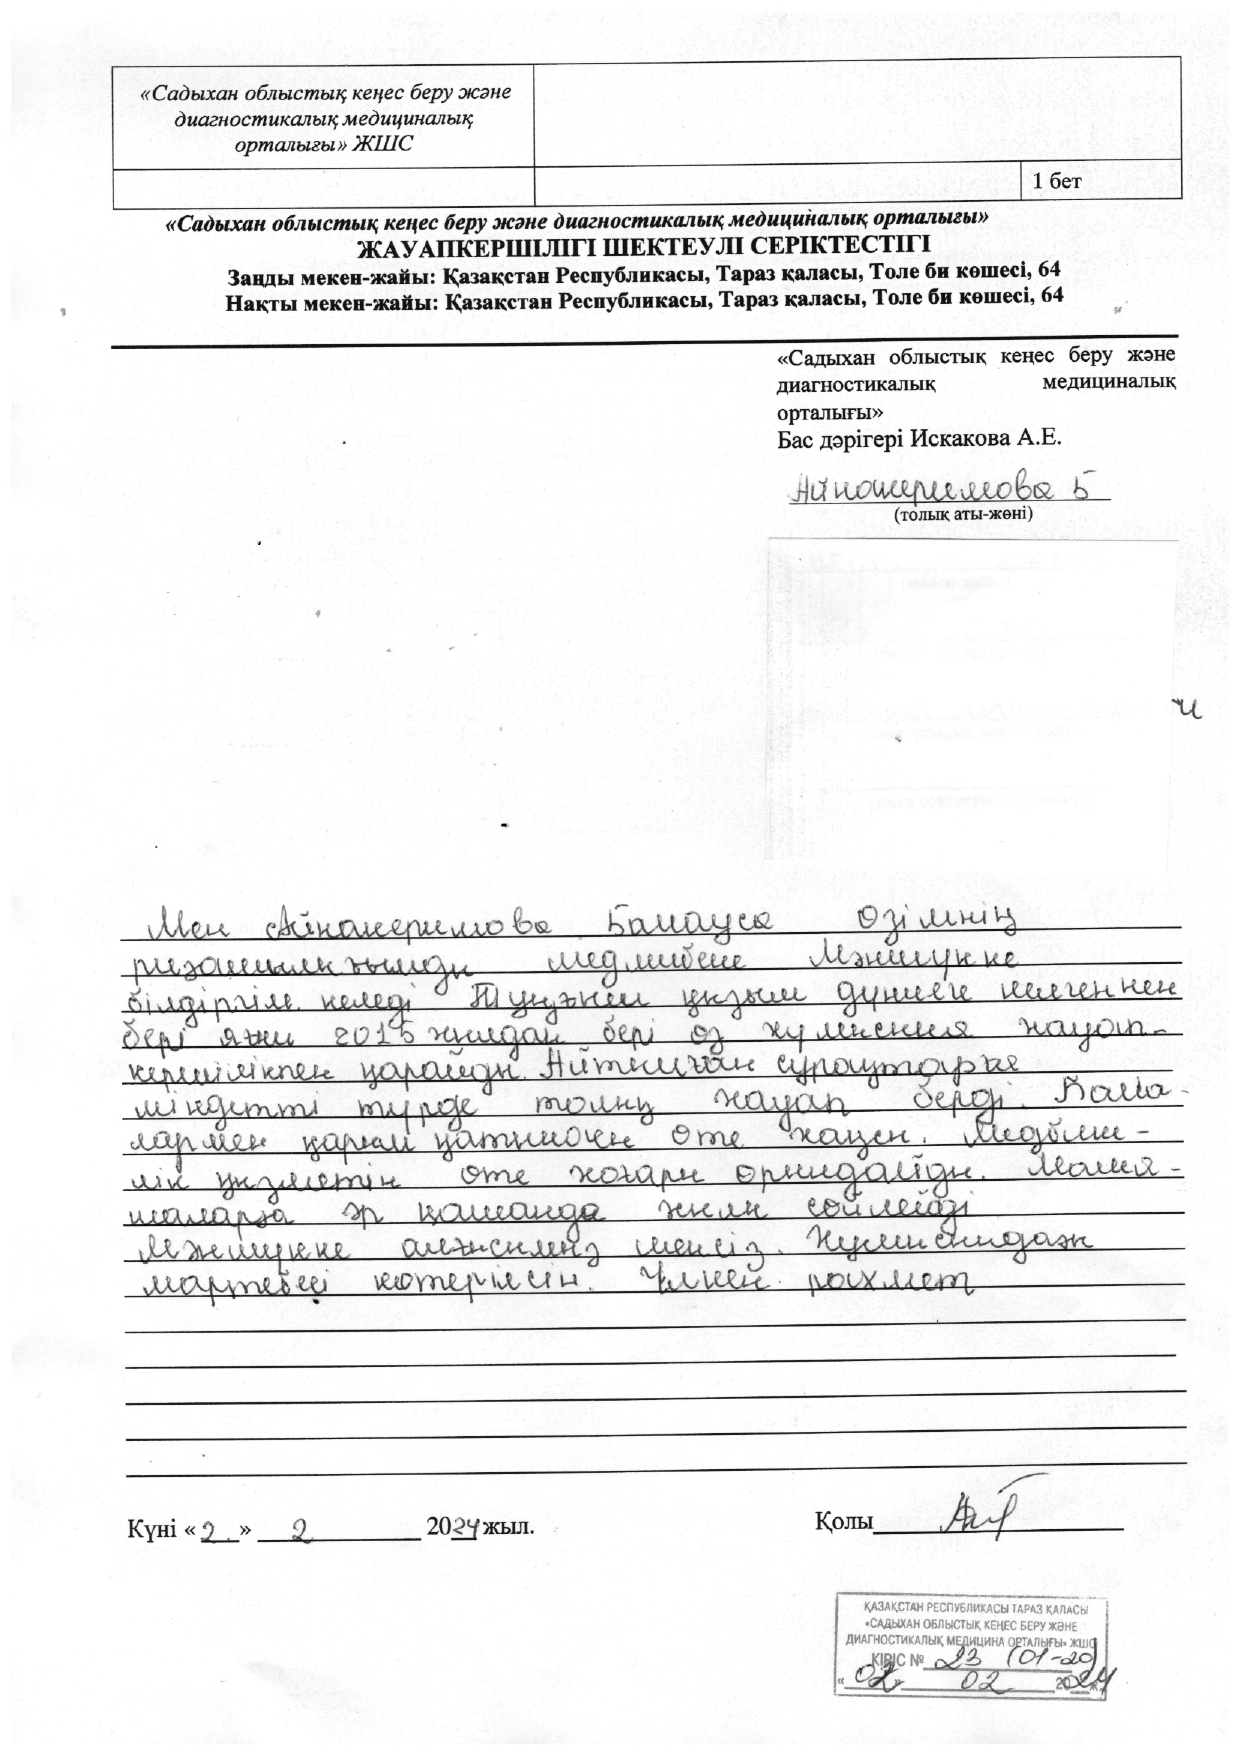 «Садыхан облыстық кеңес беру және
диагностикалық медициналық
орталығы» ЖШС
1 бет
«Садыхан облыстық кеңес беру және диагностикалық медициналық орталығы»
ЖАУАПКЕРШІЛІГІ ШЕКТЕУЛІ СЕРІКТЕСТІГІ
Заңды мекен-жайы: Қазақстан Республикасы, Тараз қаласы, Толе би көшесі, 64
Нақты мекен-жайы: Қазақстан Республикасы, Тараз қаласы, Толе би көшесі, 64
«Садыхан облыстық кеңес беру және
диагностикалық медициналық
орталығы»
Бас дәрігері Искакова А.Е.
Айнакеримова Б
(толық аты-жөні)
Мен Айнакеримова Балауса өзімнің
ризашылығымды медбике
білдіргім келеді Тұңғыш қызым дүниеге келгеннен
бері яғни 2015 жылдан бері өз жұмысына жауап-
кершілікпен қарайды. Айтылған сұрақтарға
міндетті түрде толық жауап берді. Бала-
лармен қарым қатынасы өте жақсы.
қызметін өте жоғары орындайды. Мама-
шаларға әр қашанда жылы сөйлейді
алғысымыз шексіз.
мартебесі көтерілсін. Үлкен рахмет
Күні «2» 2 2024 жыл.
Қолы
ҚАЗАҚСТАН РЕСПУБЛИКАСЫ ТАРАЗ ҚАЛАСЫ
«САДЫХАН ОБЛЫСТЫҚ КЕҢЕС БЕРУ ЖӘНЕ
ДИАГНОСТИКАЛЫҚ МЕДИЦИНА ОРТАЛЫҒЫ» ЖШС
КІРІС № 23 (01-20)
«02» 02 2024 ж